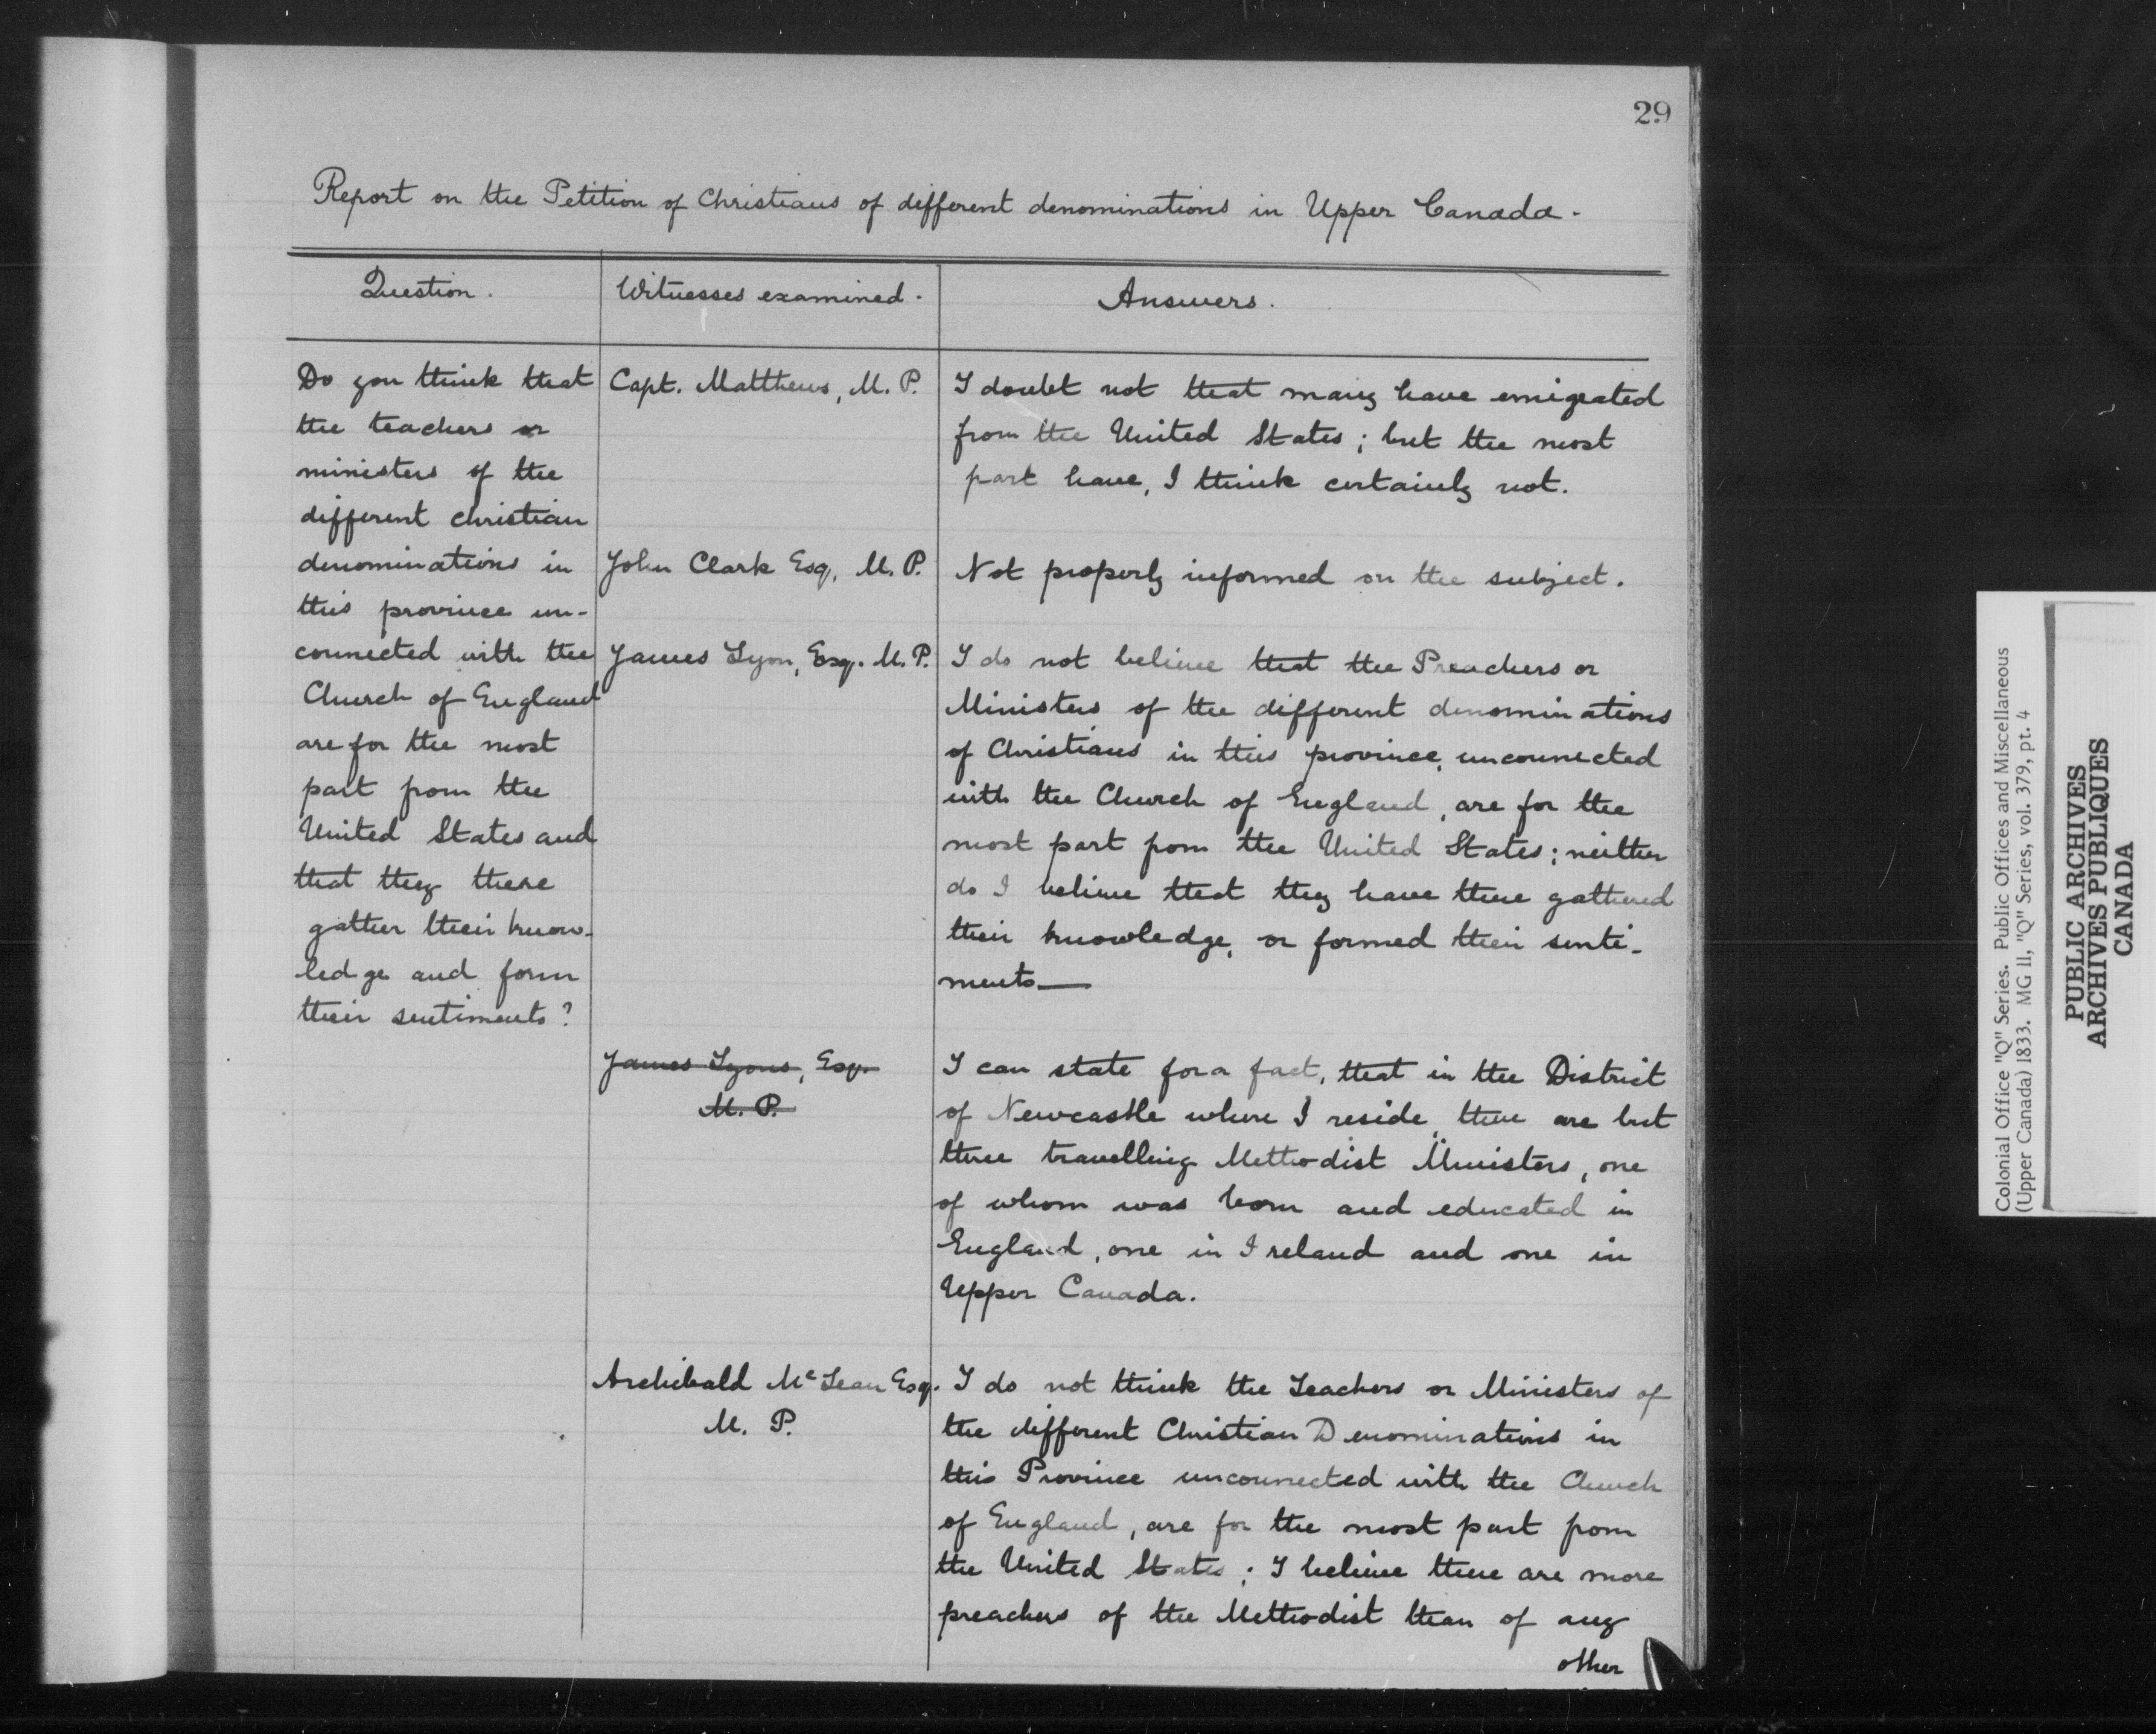 29
Report on the Petition of Christians of different denominations in Upper Canada.
Question.
Witnesses examined.
Answers.
Do you think that
the teachers or
ministers of the
different christian
denominations in
this province un-
connected with the
Church of England
are for the most
part from the
United States and
that they there
gather their know-
ledge and form
their sentiments?
Capt. Matthews, M. P.
I doubt not that many have emigrated
from the United States; but the most
part have, I think certainly not.
John Clark Esq, M. P.
Not properly informed on the subject.
James Lyon, Esq. M. P.
I do not believe that the Preachers or
Ministers of the different denominations
of Christians in this province, unconnected
with the Church of England, are for the
most part from the United States; neither
do I believe that they have there gathered
their knowledge, or formed their senti-
ments—
James Lyons, Esq.
M. P.
I can state for a fact, that in the District
of Newcastle where I reside, there are but
three travelling Methodist Ministers, one
of whom was born and educated in
England, one in Ireland and one in
Upper Canada.
Archibald McLean Esq.
M. P.
I do not think the Teachers or Ministers of
the different Christian Denominations in
this Province unconnected with the Church
of England, are for the most part from
the United States; I believe there are more
preachers of the Methodist than of any
other
Colonial Office "Q" Series. Public Offices and Miscellaneous
(Upper Canada) 1833. MG 11, "Q" Series, vol. 379, pt. 4
PUBLIC ARCHIVES
ARCHIVES PUBLIQUES
CANADA